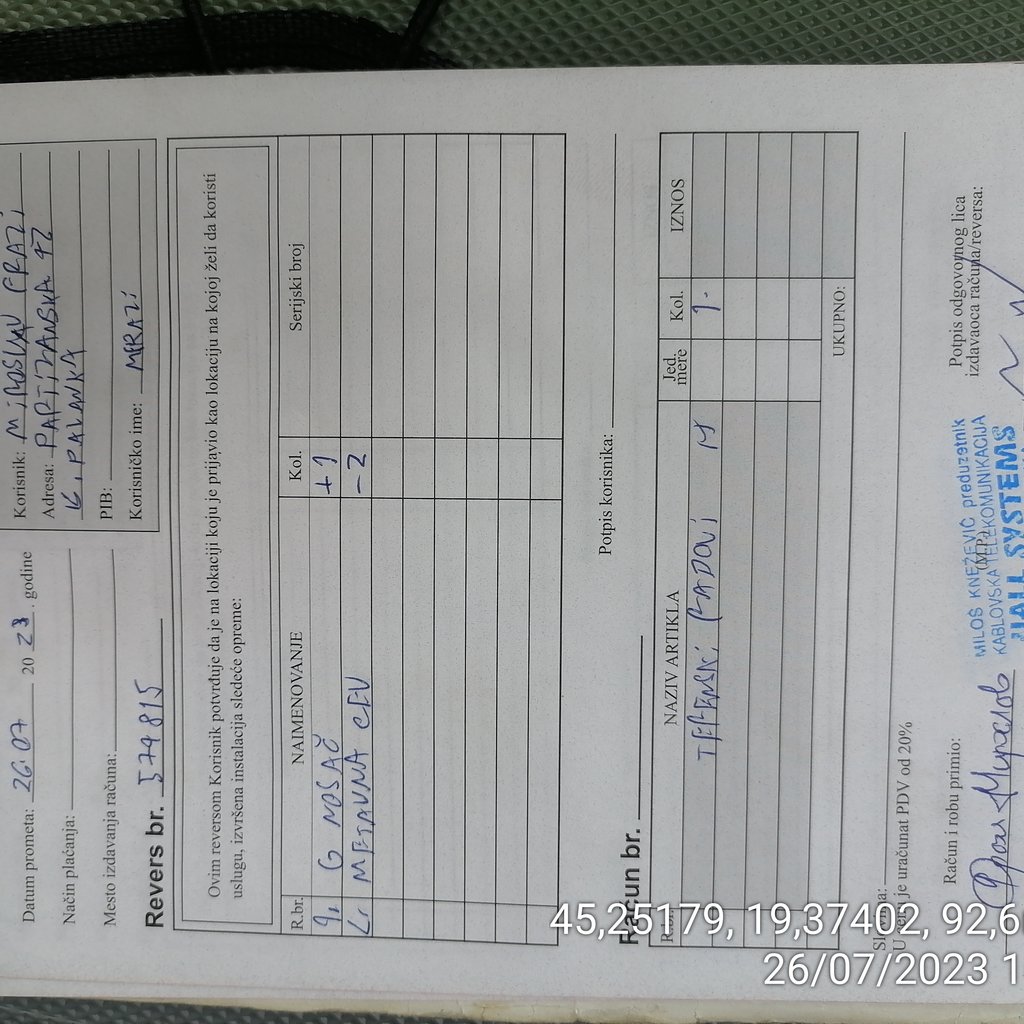 Datum prometa: 26.07 20 23 . godine
Način plaćanja:
Mesto izdavanja računa:
Korisnik: MIROSLAV FRAZI
Adresa: PARTIZANSKA 42
K. PALANKA
PIB:
Korisničko ime: MFRAZI
Revers br. 574815
Ovim reversom Korisnik potvrđuje da je na lokaciji koju je prijavio kao lokaciju na kojoj želi da koristi
uslugu, izvršena instalacija sledeće opreme:
R.br. NAIMENOVANJE Kol. Serijski broj
1. G NOSAČ +1
2. METALNA CEV -2
Potpis korisnika:
Račun br.
NAZIV ARTIKLA Jed. mere Kol. IZNOS
TERENSKI RADOVI M 1.
UKUPNO:
U je uračunat PDV od 20%
Račun i robu primio:
(M.P.)
Potpis odgovornog lica
izdavaoca računa/reversa:
MILOŠ KNEŽEVIĆ preduzetnik
KABLOVSKA TELEKOMUNIKACIJA
SYSTEMS
45,25179, 19,37402, 92,6
26/07/2023 1